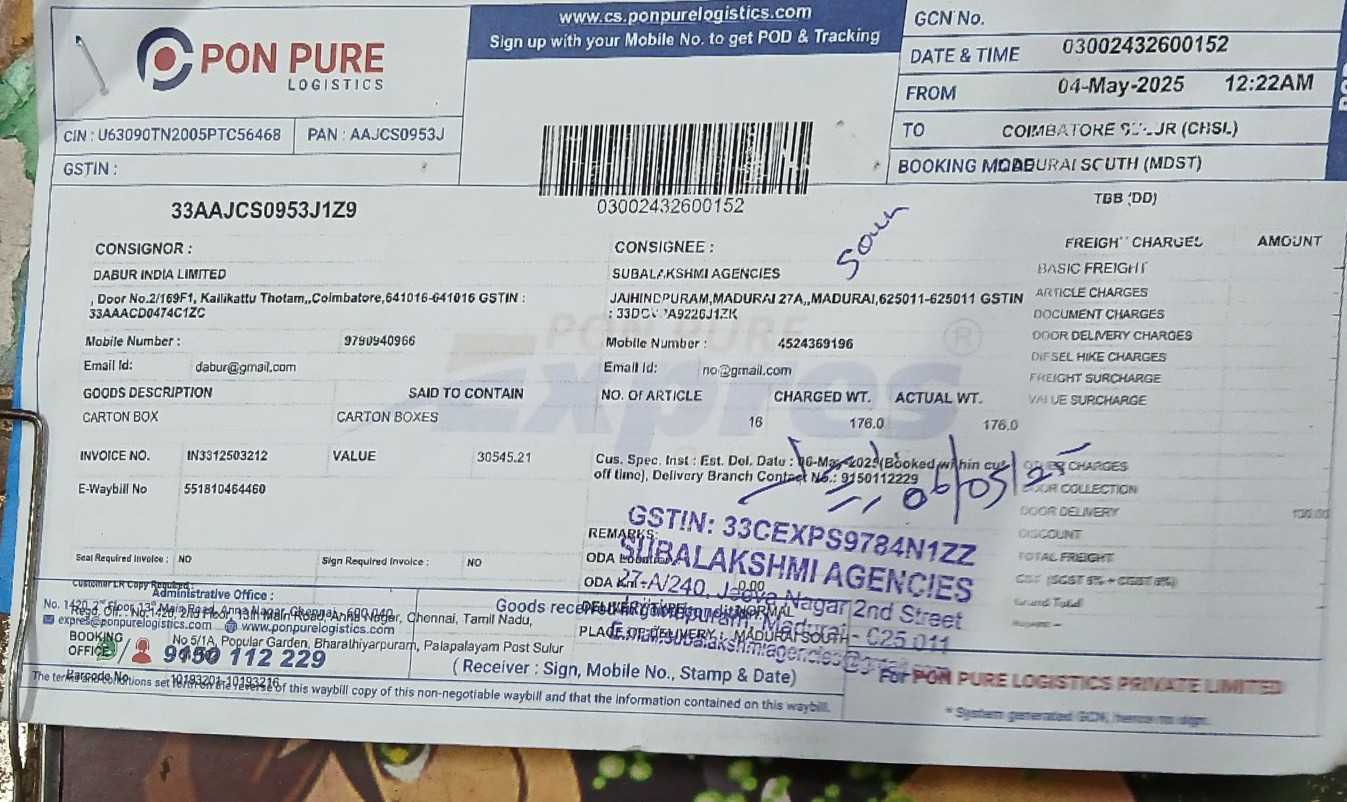 PON PURE
LOGISTICS
www.cs.ponpurelogistics.com
Sign up with your Mobile No. to get POD & Tracking
GCN No.
03002432600152
DATE & TIME
04-May-2025 12:22AM
FROM
COIMBATORE (CHSL)
TO
MADURAI SOUTH (MDST)
BOOKING MODE
TBB (DD)
CIN : U63090TN2005PTC56468
PAN : AAJCS0953J
GSTIN :
33AAJCS0953J1Z9
03002432600152
Souh
CONSIGNOR :
DABUR INDIA LIMITED
, Door No.2/169F1, Kallikattu Thotam,,Coimbatore,641016-641016 GSTIN :
33AAACD0474C1ZC
Mobile Number : 9790940966
Email Id: dabur@gmail.com
CONSIGNEE :
SUBALAKSHMI AGENCIES
JAIHINDPURAM,MADURAI 27A,,MADURAI,625011-625011 GSTIN
Mobile Number : 4524369196
Email Id: no@gmail.com
FREIGHT CHARGES AMOUNT
BASIC FREIGHT
ARTICLE CHARGES
DOCUMENT CHARGES
DOOR DELIVERY CHARGES
DIESEL HIKE CHARGES
FREIGHT SURCHARGE
VALUE SURCHARGE
OTHER CHARGES
DOOR COLLECTION
DOOR DELIVERY
DISCOUNT
TOTAL FREIGHT
Grand Total
PON PURE
Expres
GOODS DESCRIPTION SAID TO CONTAIN NO. Of ARTICLE CHARGED WT. ACTUAL WT.
CARTON BOX CARTON BOXES 16 176.0 176.0
INVOICE NO. IN3312503212 VALUE 30545.21
E-Waybill No 551810464460
Cus. Spec. Inst : Est. Del. Date : 06-May-2025(Booked within cut
off time), Delivery Branch Contact No.: 9150112229
06/05/25
REMARKS:
ODA Location
ODA Km: 0.00
DELIVERY TYPE : NORMAL
PLACE OF DELIVERY : MADURAI SOUTH
GSTIN: 33CEXPS9784N1ZZ
SUBALAKSHMI AGENCIES
27-A/240, Jeeva Nagar 2nd Street
Madurai - 625 011
E.mail:subalakshmiagencies@gmail.com
Seal Required Invoice : NO Sign Required Invoice : NO
Customer LR Copy Required :
Administrative Office :
No. 1420, 2nd Floor, 13th Main Road, Anna Nagar, Chennai - 600 040.
Regd. Off. : No.1420, 2nd Floor, 13th Main Road, Anna Nagar, Chennai, Tamil Nadu,
expres@ponpurelogistics.com www.ponpurelogistics.com
BOOKING OFFICE
No 5/1A, Popular Garden, Bharathiyarpuram, Palapalayam Post Sulur
9150 112 229
Barcode No 10193201-10193216
(Receiver : Sign, Mobile No., Stamp & Date)
The terms and conditions set forth on the reverse of this waybill copy of this non-negotiable waybill and that the information contained on this waybill.
For PON PURE LOGISTICS PRIVATE LIMITED
* System generated GCN, hence no sign.